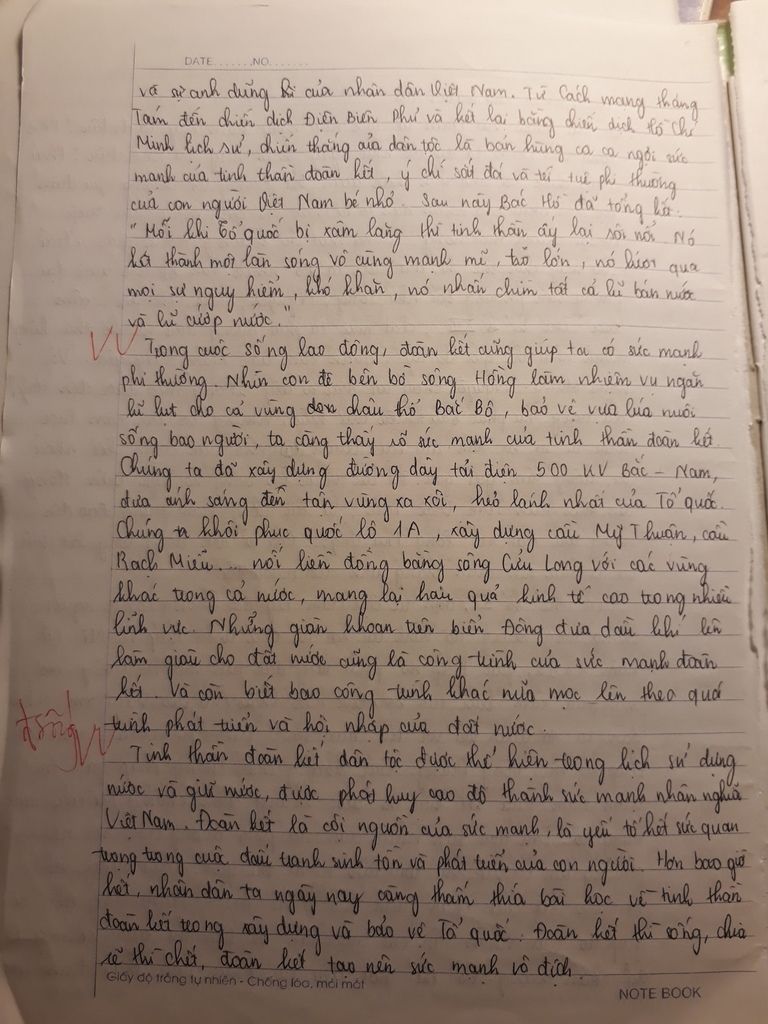 DATE.......NO.......
và sự anh dũng của nhân dân Việt Nam. Từ Cách mạng tháng
Tám đến chiến dịch Điện Biên Phủ và kết lại bằng chiến dịch Hồ Chí
Minh lịch sử, chiến thắng của dân tộc là bản hùng ca ca ngợi sức
mạnh của tinh thần đoàn kết, ý chí sắt đá và trí tuệ phi thường
của con người Việt Nam bé nhỏ. Sau này Bác Hồ đã tổng kết.
"Mỗi khi Tổ quốc bị xâm lăng thì tinh thần ấy lại sôi nổi. Nó
kết thành một làn sóng vô cùng mạnh mẽ, to lớn, nó lướt qua
mọi sự nguy hiểm, khó khăn, nó nhấn chìm tất cả lũ bán nước
và lũ cướp nước."
Trong cuộc sống lao động, đoàn kết cũng giúp ta có sức mạnh
phi thường. Nhìn con đê bên bờ sông Hồng làm nhiệm vụ ngăn
lũ lụt cho cả vùng châu thổ Bắc Bộ, bảo vệ vựa lúa nuôi
sống bao người, ta càng thấy rõ sức mạnh của tinh thần đoàn kết.
Chúng ta đã xây dựng đường dây tải điện 500 KV Bắc - Nam,
đưa ánh sáng đến tận vùng xa xôi, hẻo lánh nhất của Tổ quốc.
Chúng ta khôi phục quốc lộ 1A, xây dựng cầu Mỹ Thuận, cầu
Rạch Miễu... nối liền đồng bằng sông Cửu Long với các vùng
khác trong cả nước, mang lại hậu quả kinh tế cao trong nhiều
lĩnh vực. Những giàn khoan trên biển Đông đưa dầu khí lên
làm giàu cho đất nước cũng là công trình của sức mạnh đoàn
kết. Và còn biết bao công trình khác nữa mọc lên theo quá
trình phát triển và hội nhập của đất nước.
Tinh thần đoàn kết dân tộc được thể hiện trong lịch sử dựng
nước và giữ nước, được phát huy cao độ thành sức mạnh nhân nghĩa
Việt Nam. Đoàn kết là cội nguồn của sức mạnh, là yếu tố hết sức quan
trọng trong cuộc đấu tranh sinh tồn và phát triển của con người. Hơn bao giờ
hết, nhân dân ta ngày nay càng thấm thía bài học về tinh thần
đoàn kết trong xây dựng và bảo vệ Tổ quốc. Đoàn kết thì sống, chia
rẽ thì chết, đoàn kết tạo nên sức mạnh vô địch.
Giấy độ trắng tự nhiên - Chống lóa, mỏi mắt
NOTE BOOK